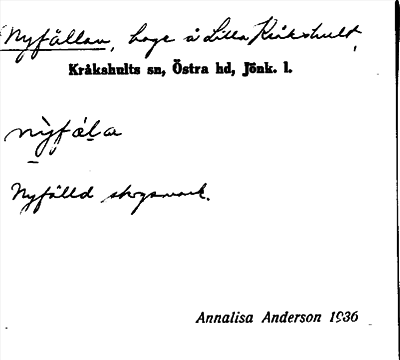 Nyfällan, hage å Lilla Kråkshult,
Kråkshults sn, Östra hd, Jönk. l.
nỳfä́la
Nyfälld skogsmark.
Annalisa Anderson 1936